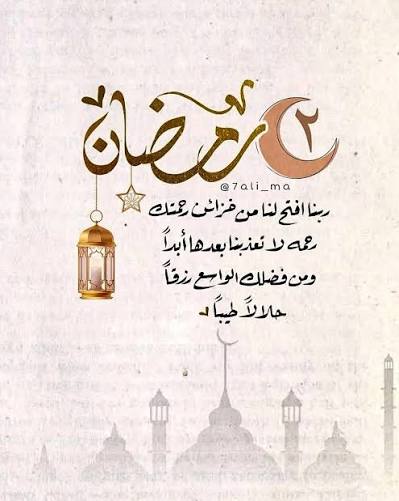 ٢ رمضان
@7ali_ma
ربنا افتح لنا من خزائن رحمتك
رحمه لا تعذبنا بعدها أبداً
ومن فضلك الواسع رزقاً
حلالاً طيباً